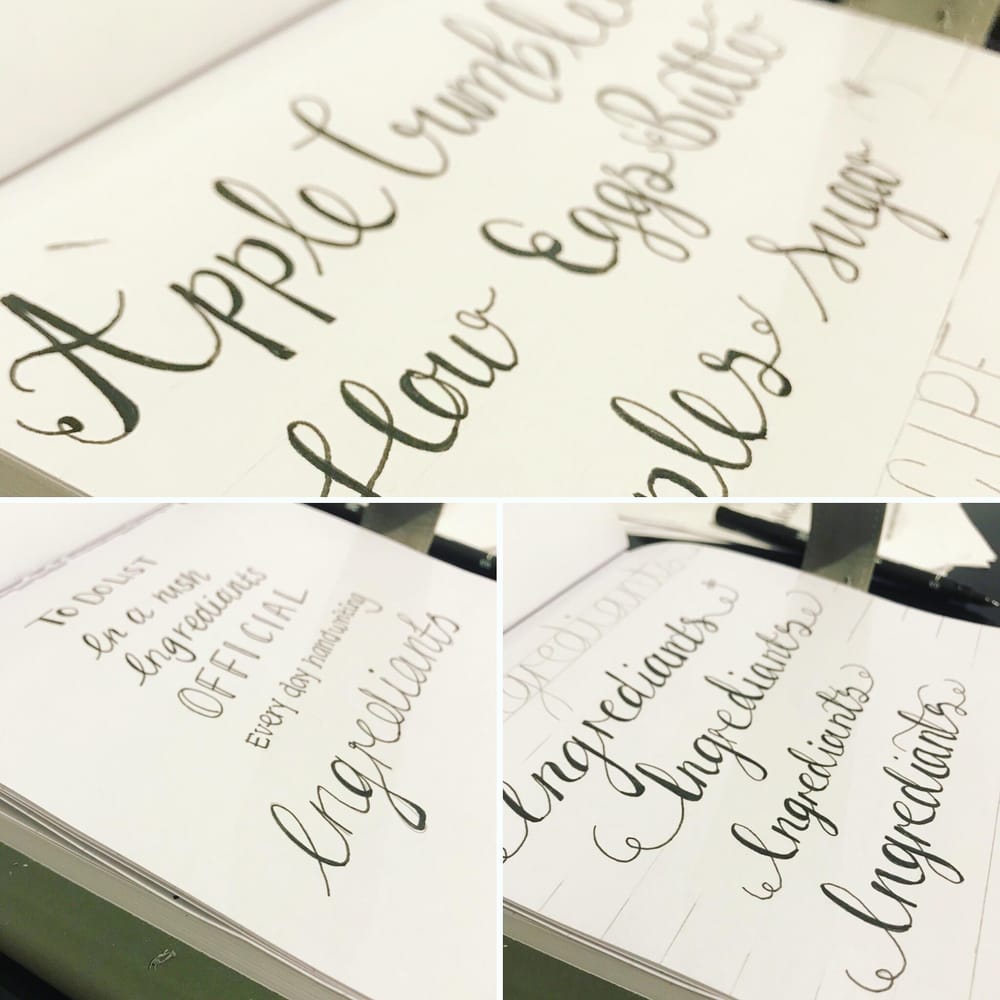 Apple Crumble
Eggs Butter
flour
Sugar
ples
CIPE
TO DO LIST
In a rush
Ingrediants
OFFICIAL
Every day handwriting
Ingrediants
grediants
Ingrediants
Ingrediants
Ingrediants
Ingrediants